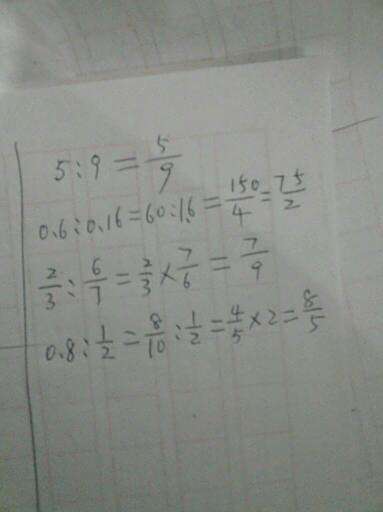 5:9=5/9
0.6:0.16=60:16=150/4=75/2
2/3:6/7=2/3×7/6=7/9
0.8:1/2=8/10:1/2=4/5×2=8/5